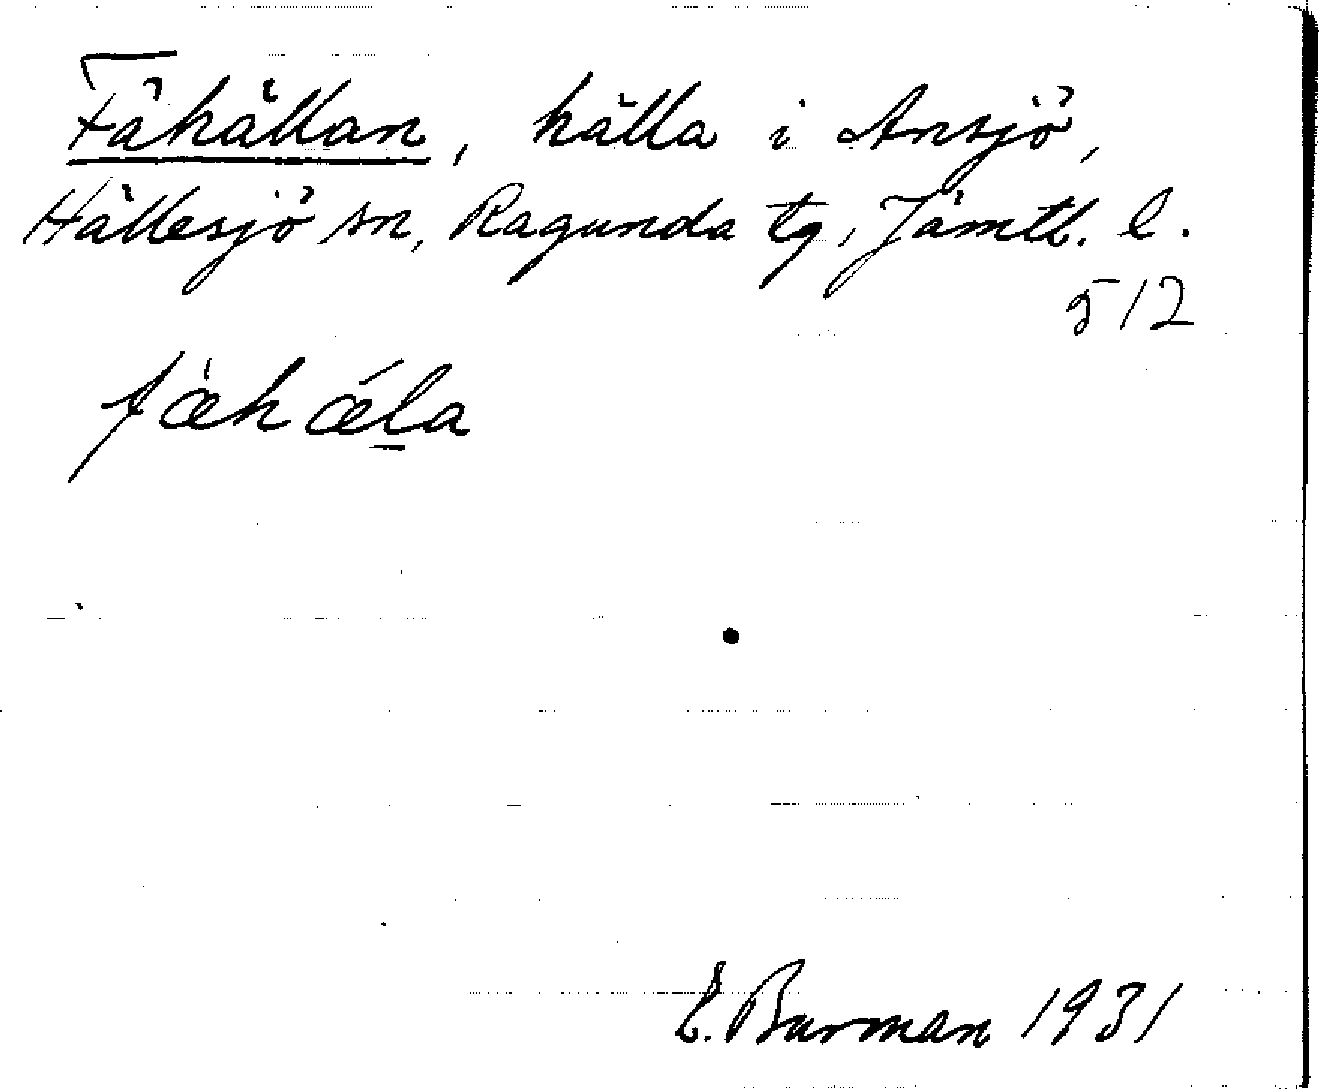 Fäkällan, källa i Ansjö,
Hällesjö sn, Ragunda tg, Jämtl. l.
512
fæ̀kǽḷa
E. Burman 1931